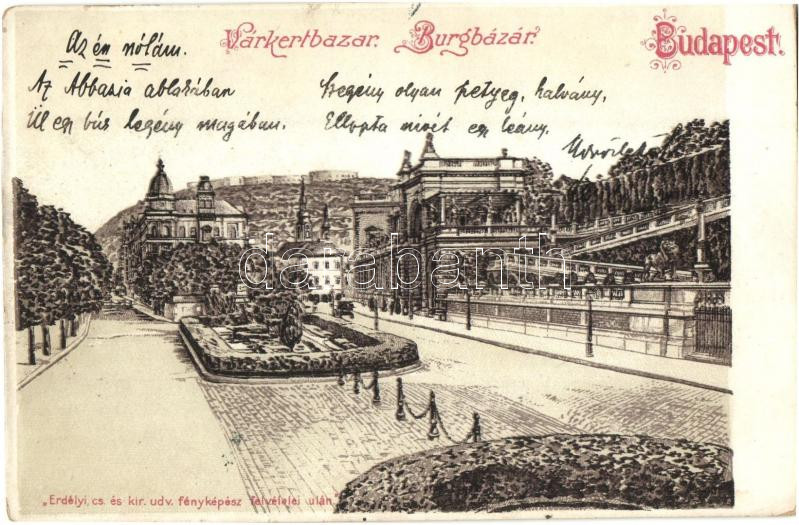 Várkertbazar. Burgbázár.
Budapest.
Az én nótám.
Az Abbazia ablakában
Ül egy bús legény magában.
Szegény olyan petyeg, halvány,
Ellopta szivét egy leány.
Üdvözlet
databanth
„Erdélyi, cs. és kir. udv. fényképész felvételei után."